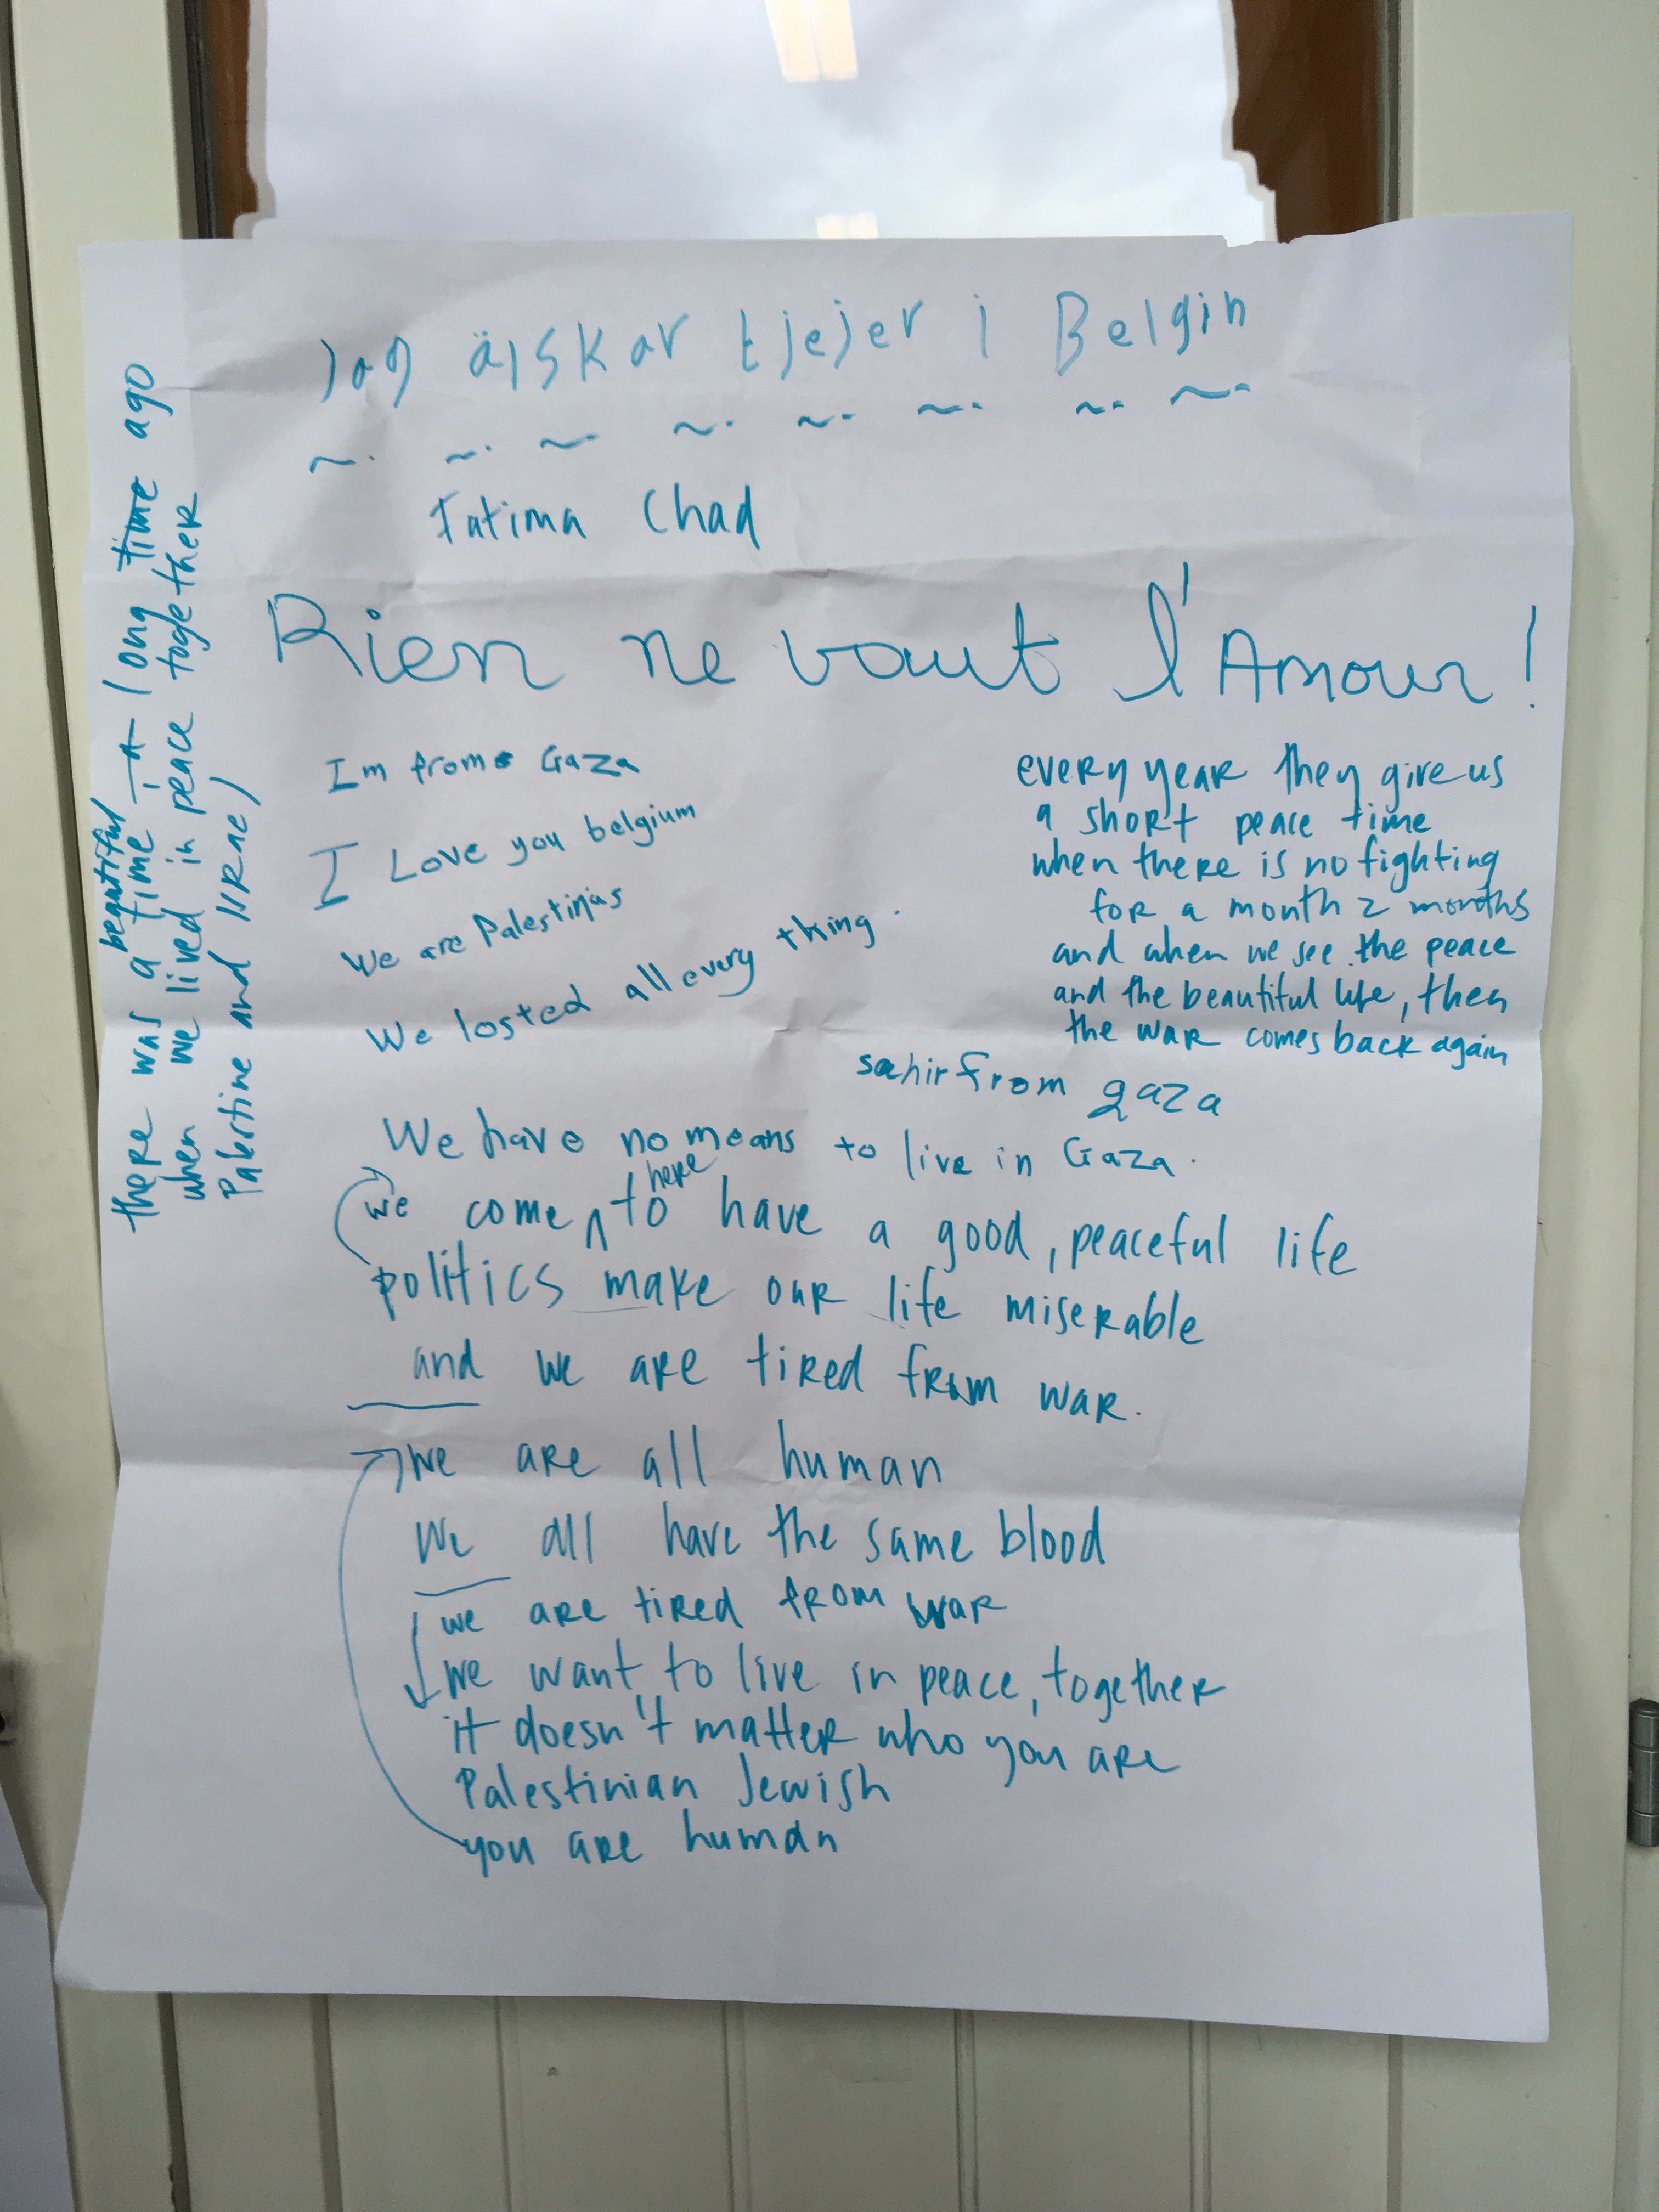 Jag älskar tjejer i Belgin
Fatima Chad
Rien ne vaut l'Amour!
Im from Gaza
I Love you belgium
We are Palestinas
We losted all every thing.
every year they give us
a short peace time
when there is no fighting
for a month 2 months
and when we see the peace
and the beautiful life, then
the war comes back again
sahir from gaza
We have no means to live in Gaza.
here
we come to have a good, peaceful life
politics make our life miserable
and we are tired from war.
we are all human
we all have the same blood
we are tired from war
we want to live in peace, together
it doesn't matter who you are
Palestinian Jewish
you are human
beautiful
there was a time a long time ago
when we lived in peace together
Palestine and